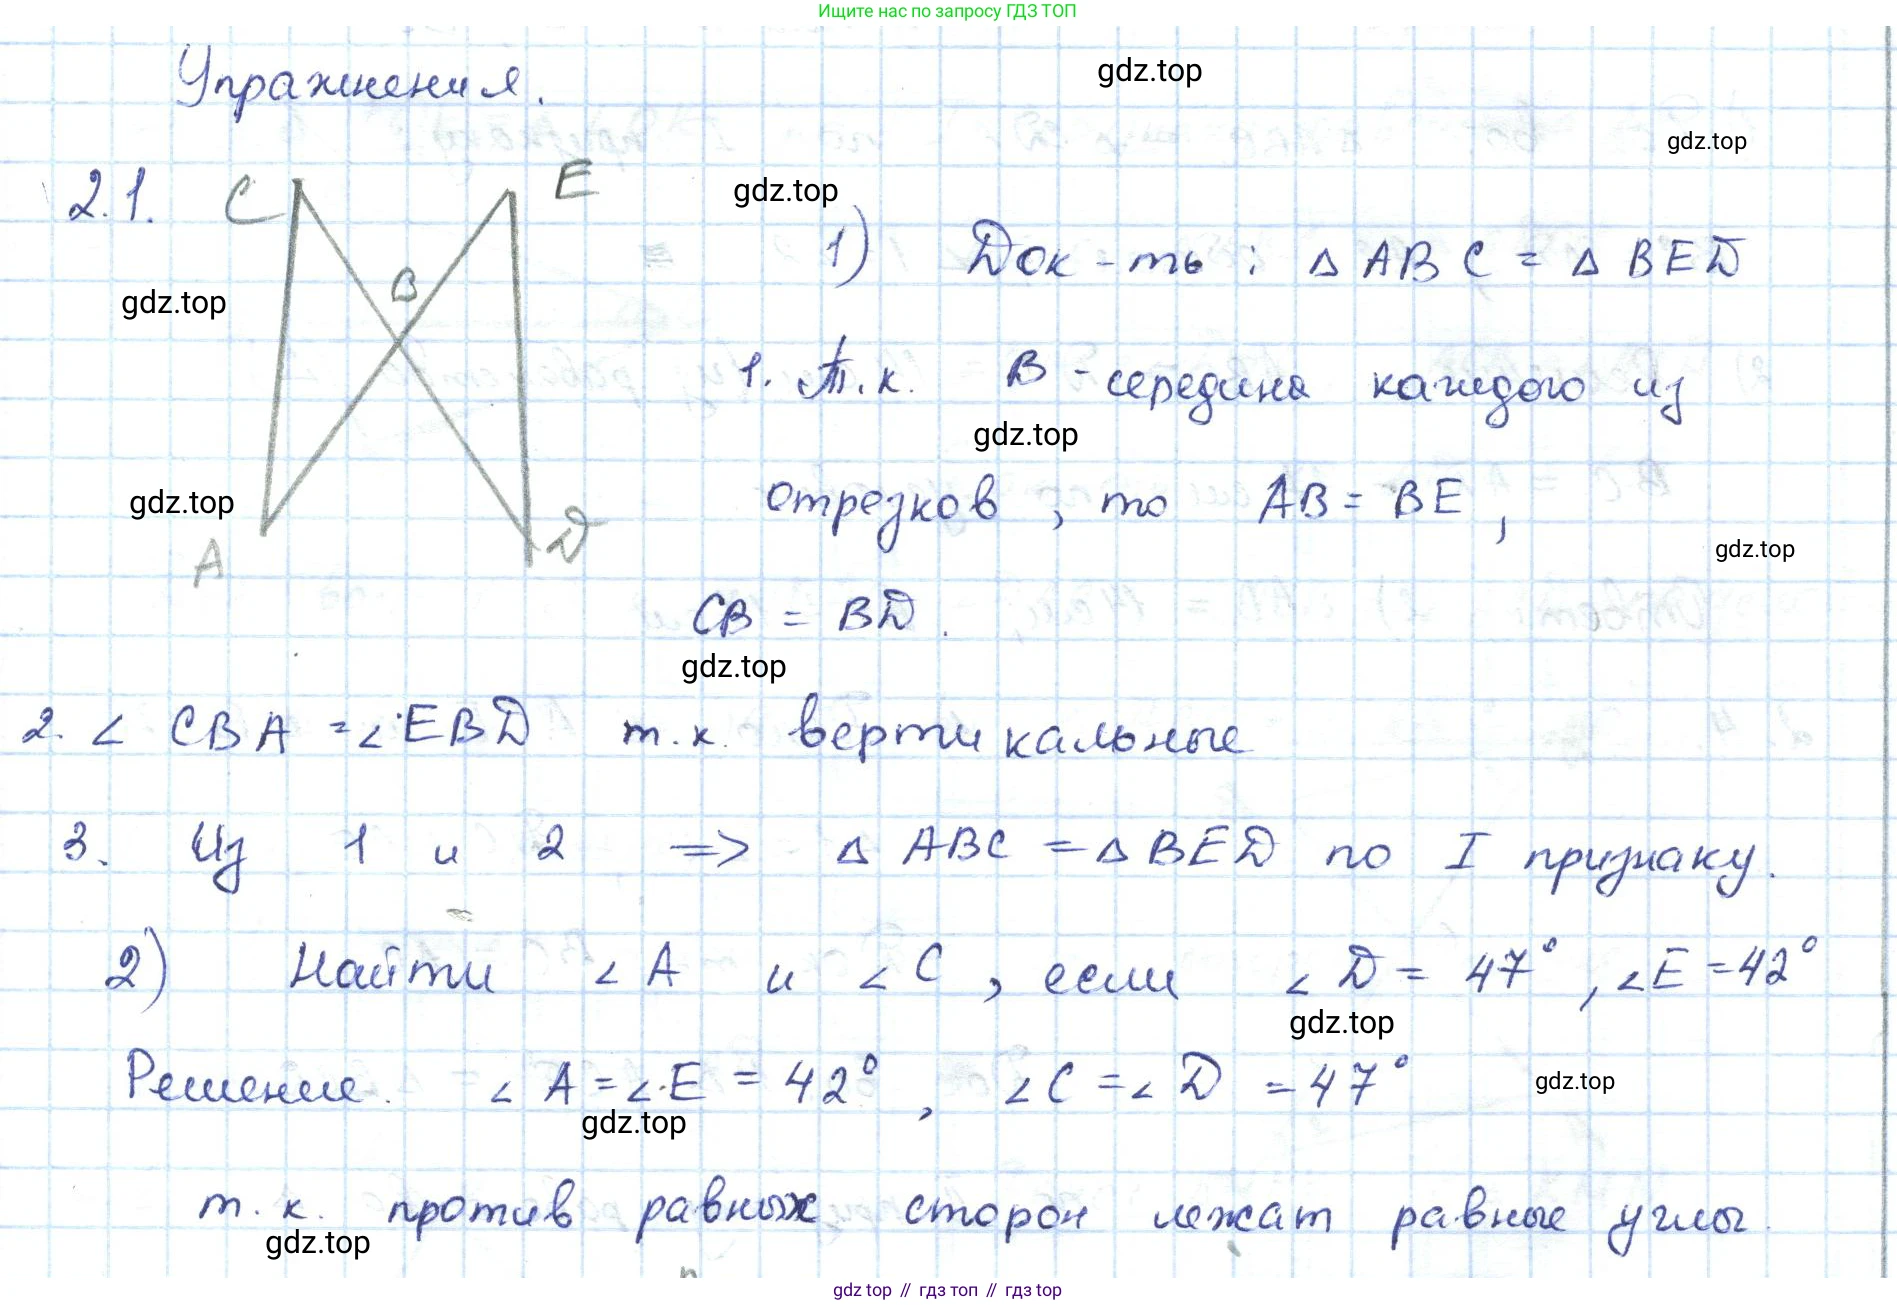 Ищите нас по запросу ГДЗ ТОП
Упражнения.
gdz.top
gdz.top
2.1. C E
gdz.top
1) Док-ть: △ ABC = △ BED
B
gdz.top
1. Т.к. B - середина каждого из
gdz.top
отрезков, то AB = BE,
gdz.top
A D
gdz.top
CB = BD.
gdz.top
2. ∠ CBA = ∠ EBD т.к. вертикальные
3. Из 1 и 2 => △ ABC = △ BED по I признаку.
2) Найти ∠ A и ∠ C, если ∠ D = 47°, ∠ E = 42°
gdz.top
Решение. ∠ A = ∠ E = 42°, ∠ C = ∠ D = 47°
gdz.top
gdz.top
т.к. против равных сторон лежат равные углы.
gdz.top
gdz.top // гдз топ // гдз top